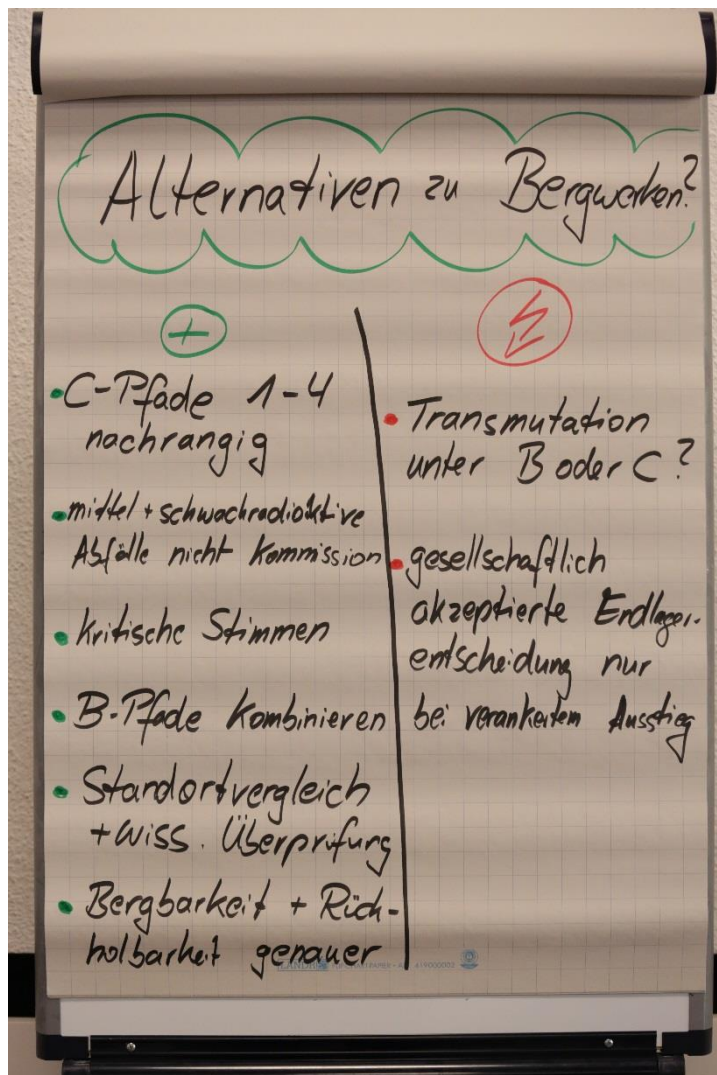 Alternativen zu Bergwerken?
+
• C-Pfade 1-4
nachrangig
• mittel + schwachradioaktive
Abfälle nicht Kommission
• kritische Stimmen
• B-Pfade kombinieren
• Standortvergleich
+ wiss. Überprüfung
• Bergbarkeit + Rück-
holbarkeit genauer
• Transmutation
unter B oder C?
• gesellschaftlich
akzeptierte Endlager-
entscheidung nur
bei verankertem Ausstieg